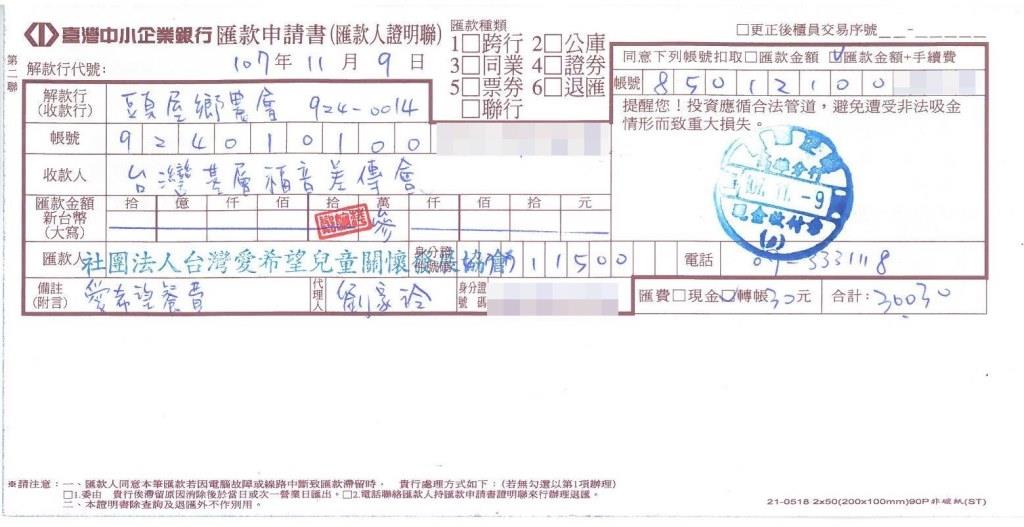 臺灣中小企業銀行 匯款申請書(匯款人證明聯)
第二聯
解款行代號: 107年 11月 9日
匯款種類
1□跨行 2□公庫
3□同業 4□證券
5□票券 6□退匯
□聯行
□更正後櫃員交易序號
同意下列帳號扣取□匯款金額 ☑匯款金額+手續費
帳號 85012100
提醒您!投資應循合法管道,避免遭受非法吸金
情形而致重大損失。
解款行(收款行) 頭屋鄉農會 924-0014
帳號 924010100
收款人 台灣基層福音差傳會
匯款金額 新台幣(大寫) 拾 億 仟 佰 拾 萬 仟 佰 拾 元
參
匯款人 社團法人台灣愛希望兒童關懷發展協會
身分證
11500
電話 04-3331118
備註(附言) 愛希望餐費
代理人
身分證號碼
匯費□現金☑轉帳30元
合計:30030
-9
現金收付章
※請注意:一、匯款人同意本筆匯款若因電腦故障或線路中斷致匯款滯留時, 貴行處理方式如下:(若無勾選以第1項辦理)
□1.委由 貴行俟滯留原因消除後於當日或次一營業日匯出。□2.電話聯絡匯款人持匯款申請書證明聯來行辦理退匯。
二、本證明書除查詢及退匯外不作別用。
21-0518 2x50(200x100mm)90P非碳紙(ST)